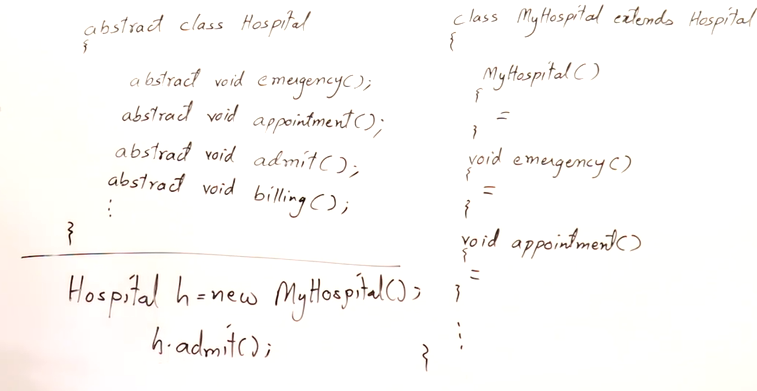 abstract class Hospital
{
abstract void emergency();
abstract void appointment();
abstract void admit();
abstract void billing();
⋮
}
Hospital h=new MyHospital();
h.admit();
class MyHospital extends Hospital
{
MyHospital()
{
=
}
void emergency()
{
=
}
void appointment()
{
=
}
⋮
}